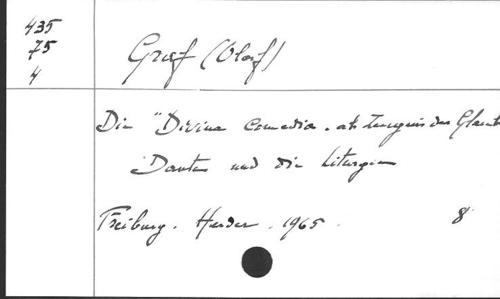 435
75
4
Graf (Olaf)
Die "Divina Comedia. als Zeugnis des Glaub
Dante und die Liturgie
Freiburg. Herder. 1965. 8°